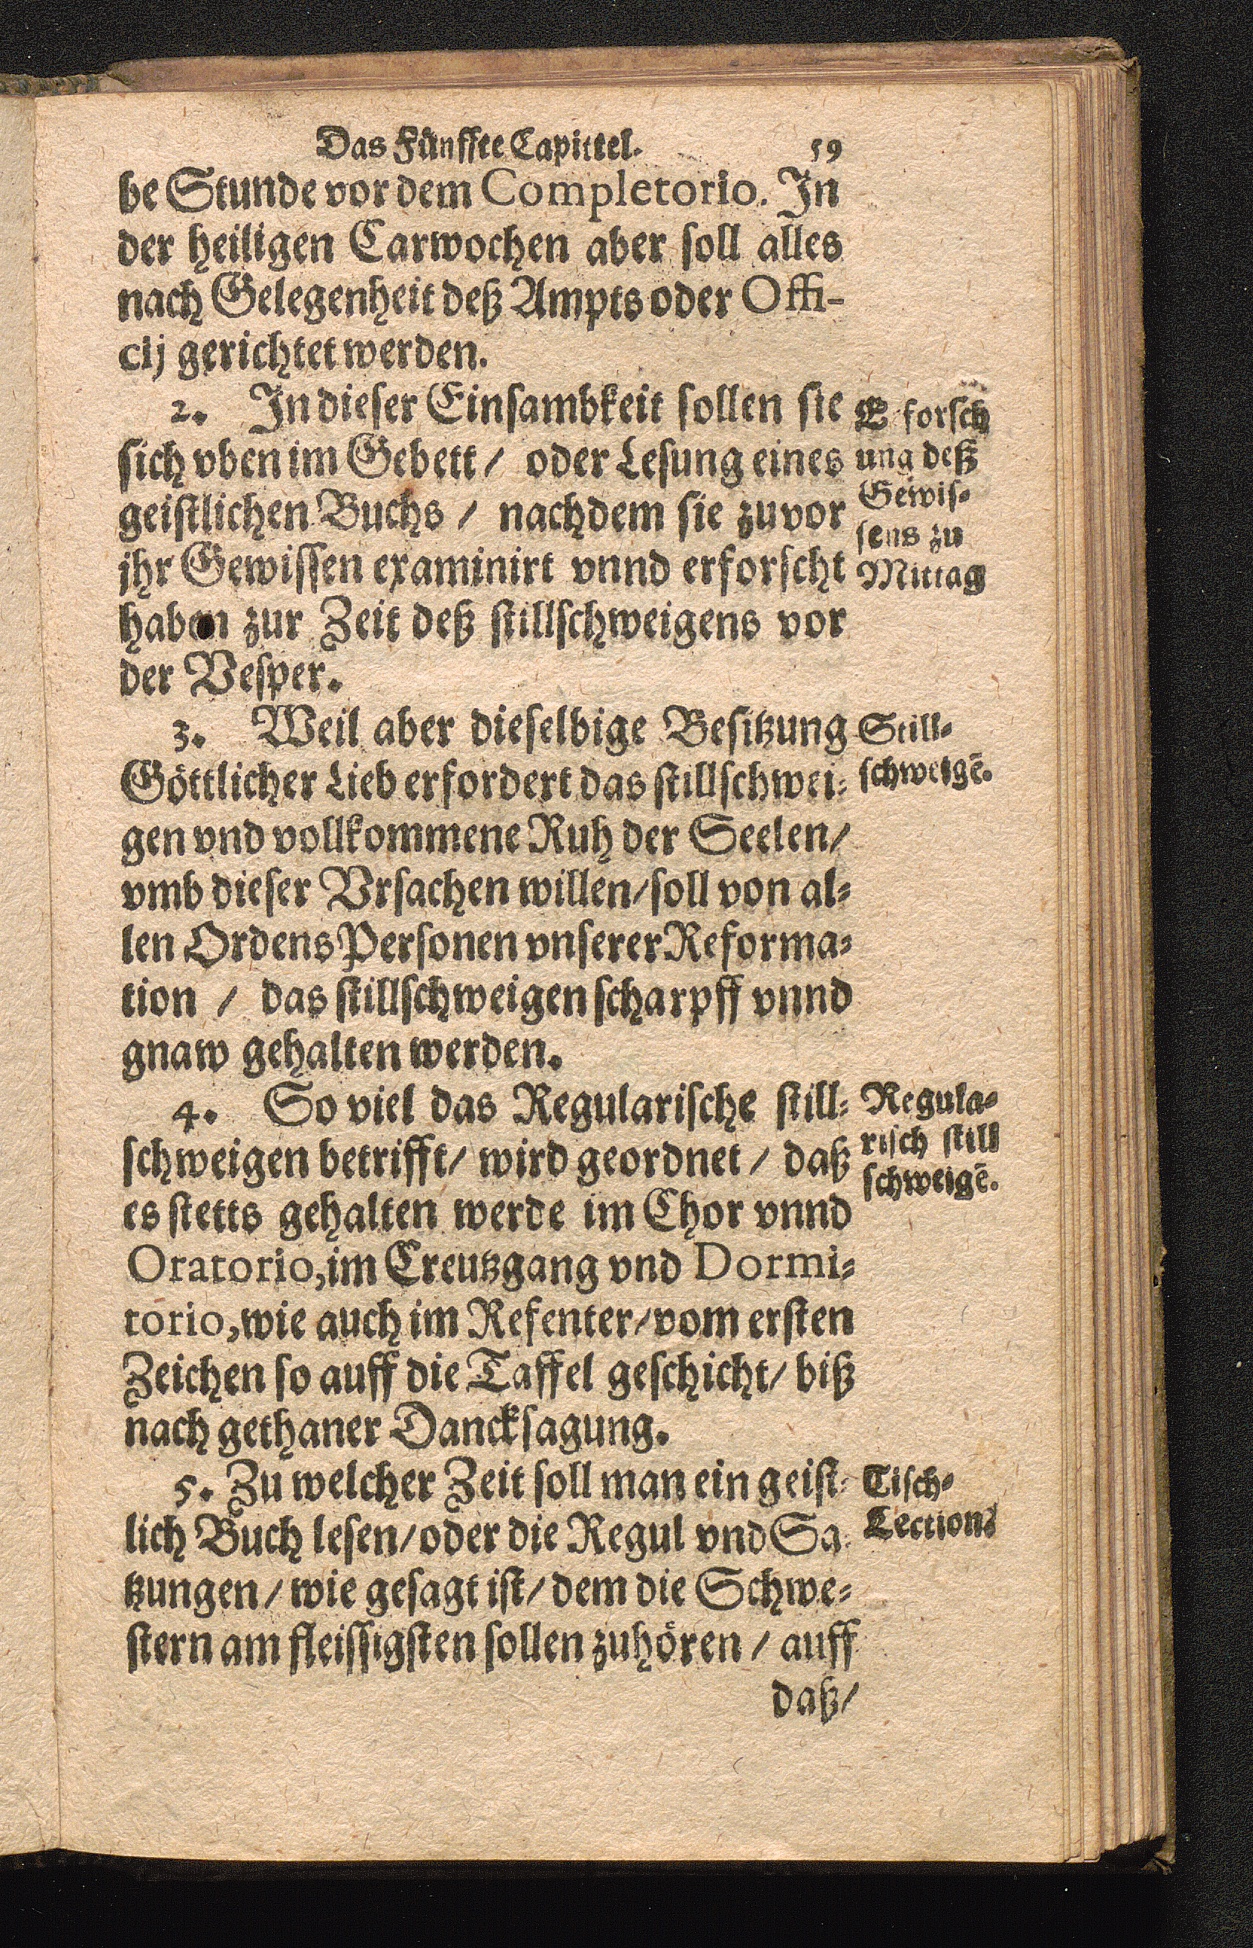 Das Fünffte Capittel. 59
be Stunde vor dem Completorio. In
der heiligen Carwochen aber soll alles
nach Gelegenheit deß Ampts oder Offi-
cij gerichtet werden.
2. In dieser Einsambkeit sollen sie
sich vben im Gebett / oder Lesung eines
geistlichen Buchs / nachdem sie zuvor
jhr Gewissen examinirt vnnd erforscht
haben zur Zeit deß stillschweigens vor
der Vesper.
E forsch
ung deß
Gewis-
sens zu
Mittag
3. Weil aber dieselbige Besitzung
Göttlicher Lieb erfordert das stillschwei-
gen vnd vollkommene Ruh der Seelen/
vmb dieser Vrsachen willen/soll von al-
len Ordens Personen vnserer Reforma-
tion / das stillschweigen scharpff vnnd
gnaw gehalten werden.
Still-
schweigẽ.
4. So viel das Regularische still-
schweigen betrifft/ wird geordnet / daß
es stetts gehalten werde im Chor vnnd
Oratorio, im Creutzgang vnd Dormi-
torio, wie auch im Refenter/vom ersten
Zeichen so auff die Taffel geschicht/ biß
nach gethaner Dancksagung.
Regula-
risch still
schweigẽ.
5. Zu welcher Zeit soll man ein geist-
lich Buch lesen/oder die Regul vnd Sa-
tzungen/ wie gesagt ist/ dem die Schwe-
stern am fleissigsten sollen zuhören / auff
Tisch-
Lection.
daß/